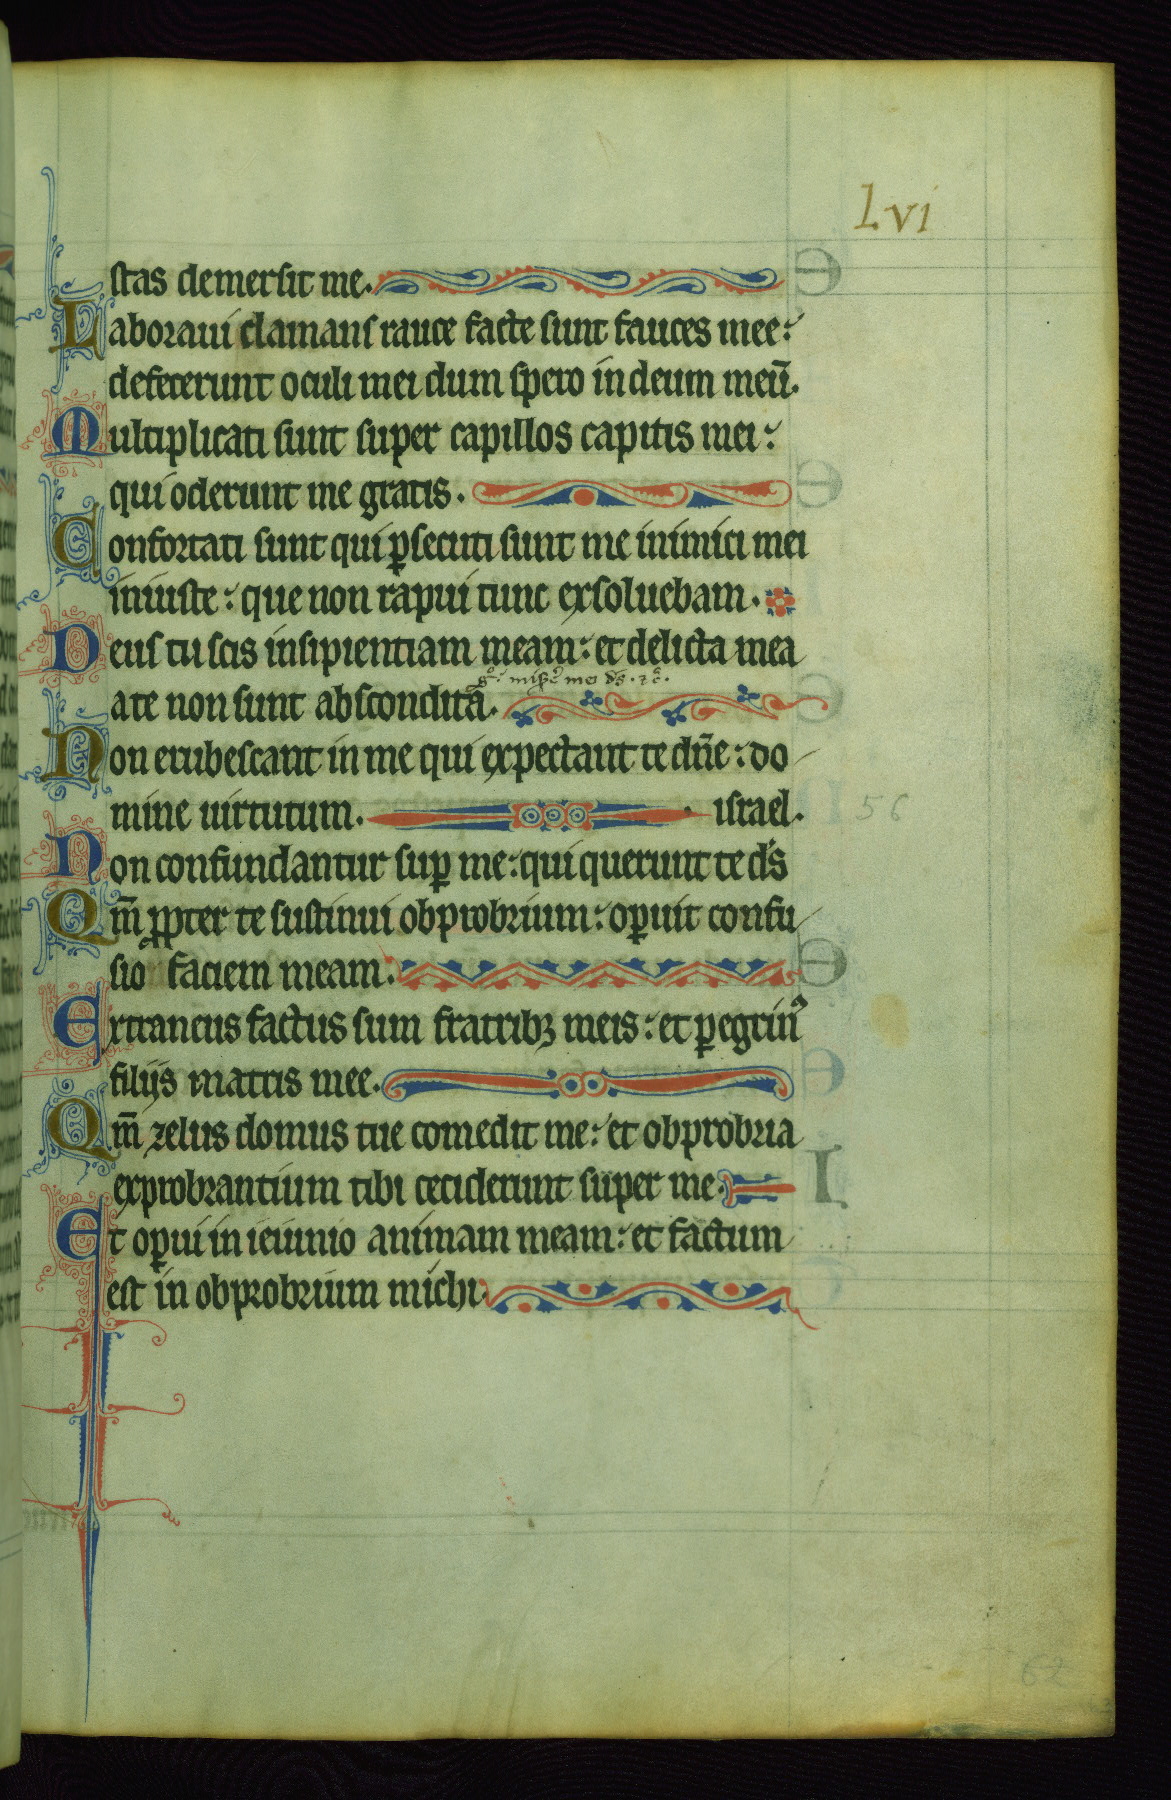 Lvi
stas demersit me.
Laboraui clamans rauce facte sunt fauces mee:
defecerunt oculi mei dum spero in deum meū.
Multiplicati sunt super capillos capitis mei:
qui oderunt me gratis.
Confortati sunt qui ꝑsecuti sunt me inimici mei
iniuste: que non rapui tunc exsoluebam.
Deus tu scis insipientiam meam: et delicta mea
a te non sunt abscondita.
Non erubescant in me qui expectant te dn̄e: do
mine uirtutum. israel.
Non confundantur suꝑ me: qui querunt te ds̄
Qm̄ ꝓpter te sustinui obprobrium: oꝑuit confu
sio faciem meam.
Extraneus factus sum fratribꝫ meis: et ꝑegrinꝰ
filijs matris mee.
Qm̄ zelus domus tue comedit me: et obprobria
exprobrantium tibi ceciderunt super me.
Et oꝑui in ieiunio animam meam: et factum
est in obprobrium michi.
56
62